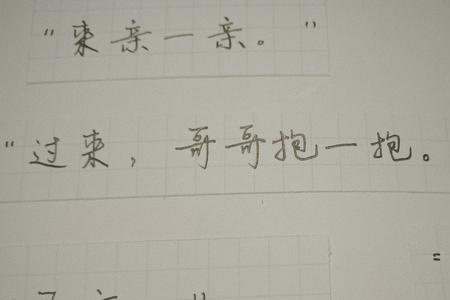 "来亲一亲。"
"过来，哥哥抱一抱。